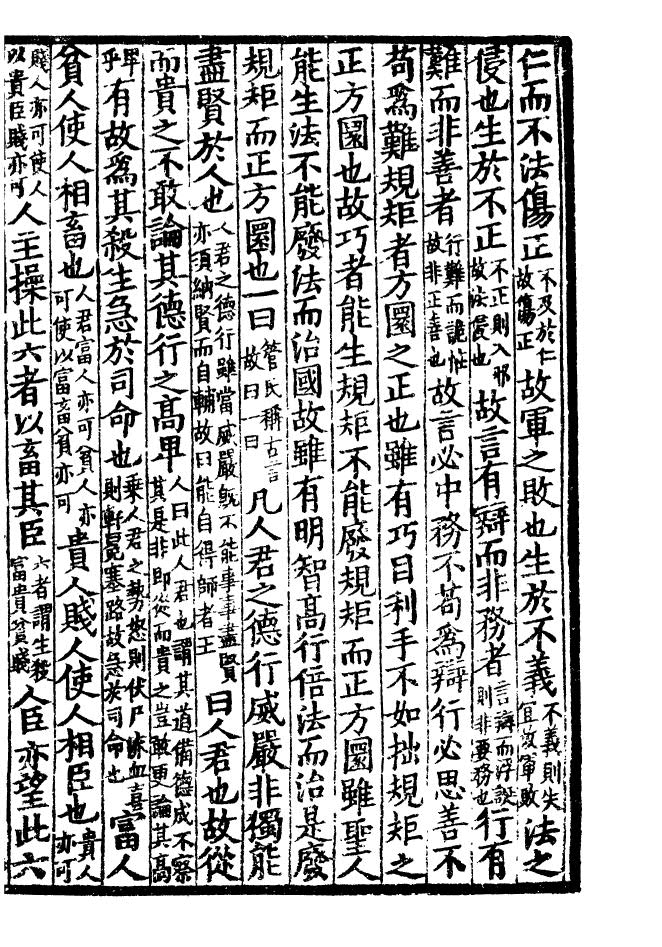 仁而不法傷正不及於仁故傷正故軍之敗也生於不義不義則失宜故軍敗法之
侵也生於不正不正則入邪故法侵也故言有辯而非務者言辯而浮誕則非要務也行有
難而非善者行難而詭怪故非正善也故言必中務不苟為辯行必思善不
苟為難規矩者方圓之正也雖有巧目利手不如拙規矩之
正方圓也故巧者能生規矩不能廢規矩而正方圓雖聖人
能生法不能廢法而治國故雖有明智高行倍法而治是廢
規矩而正方圓也一曰管氏稱古言故曰一曰凡人君之德行威嚴非獨能
盡賢於人也人君之德行雖當威嚴既不能事事盡賢亦須納賢而自輔故曰能自得師者王曰人君也故從
而貴之不敢論其德行之高卑人曰此人君也謂其道備德成不察其是非即從而貴之豈敢更論其高
卑乎有故為其殺生急於司命也乘人君之勢怒則伏尸流血喜則軒冕塞路故急於司命也富人
貧人使人相畜也人君富人亦可貧人亦可使以富畜貧亦可貴人賤人使人相臣也貴人亦可
賤人亦可使人以貴臣賤亦可人主操此六者以畜其臣六者謂生殺富貴貧賤人臣亦望此六